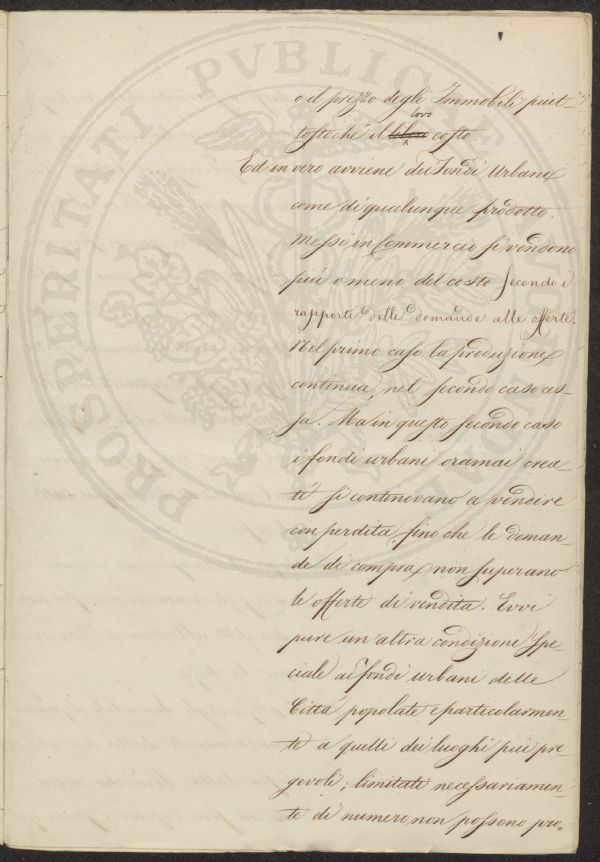 o il prezzo degli Immobili piut-
tostochè il loro costo.
Ed in vero avviene dei Fondi Urbani
come di qualunque prodotto.
Messi in Commercio si vendono
più o meno del costo secondo i
rapporti delle domande alle offerte.
Nel primo caso la produzione
continua, nel secondo caso ces-
sa. Ma in questo secondo caso
i fondi urbani oramai crea-
ti si continovano a vendere
con perdita, fino che le doman-
de di compra non superano
le offerte di vendita. Evvi
pure un'altra condizione spe-
ciale ai fondi urbani delle
Città popolate e particolarmen-
te a quelli dei luoghi più pre-
gevoli; limitati necessariamen-
te di numero non possono pro-
PROSPERITATI PVBLICAE